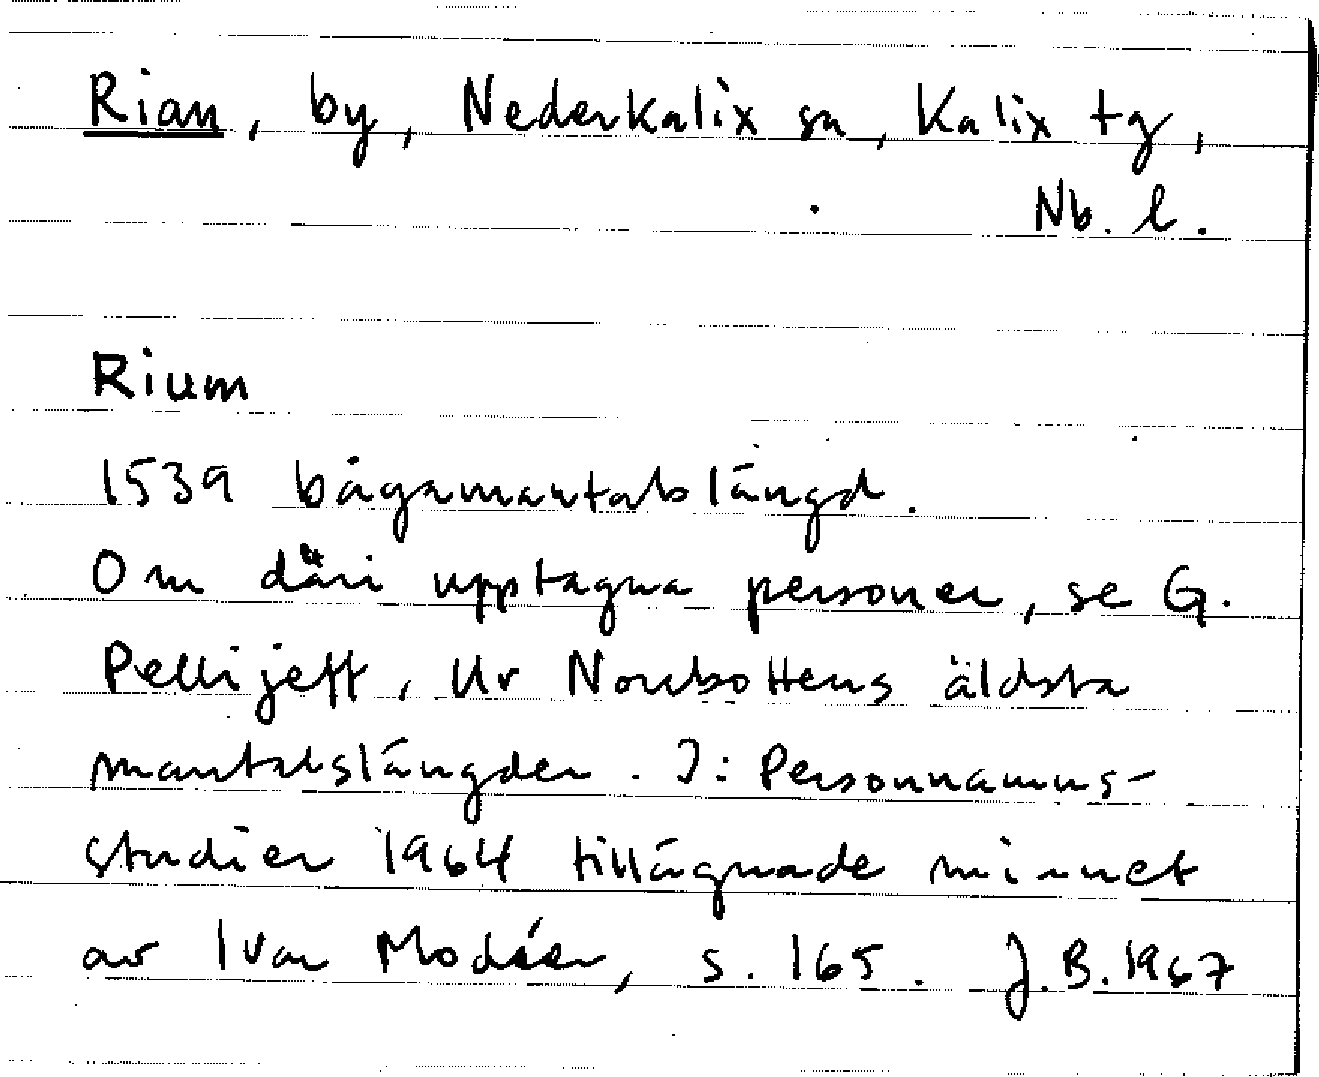 Rian, by, Nederkalix sn, Kalix tg,
Nb. l.
Rium
1539 bågamantalslängd.
Om däri upptagna personer, se G.
Pellijeff, Ur Norrbottens äldsta
mantalslängder. I: Personnamns-
studier 1964 tillägnade minnet
av Ivar Modéer, s. 165. J.B. 1967